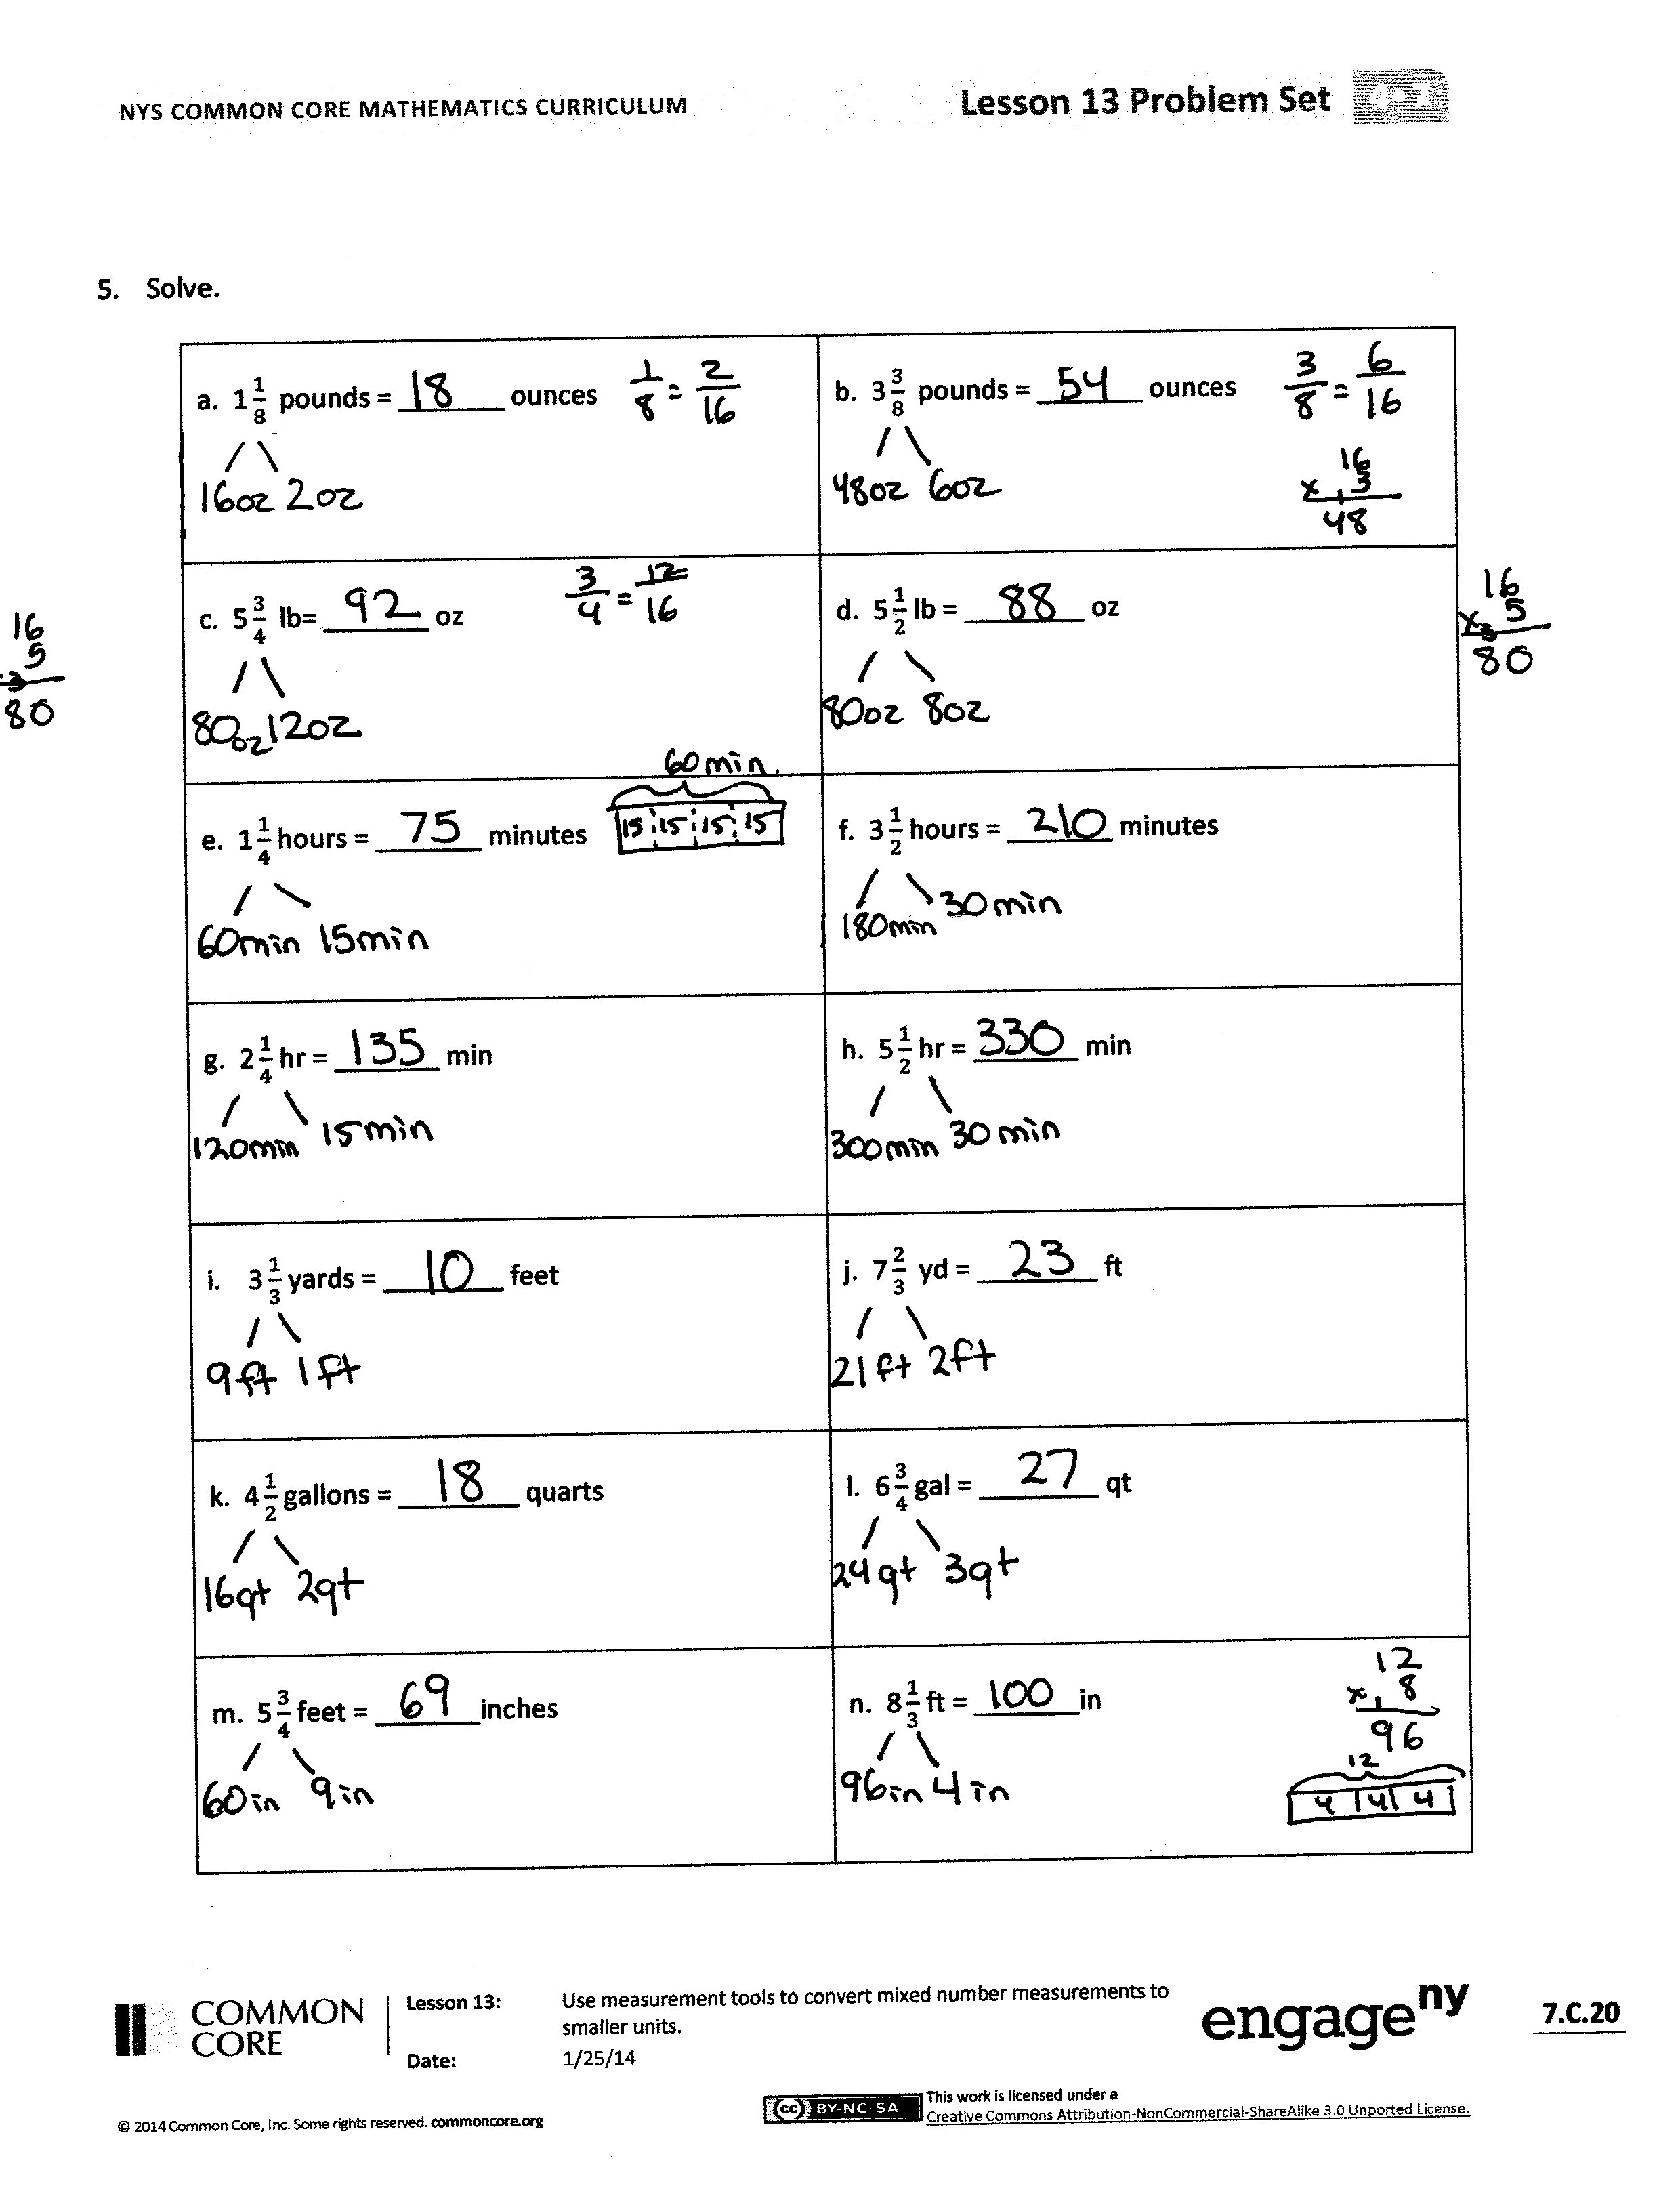 NYS COMMON CORE MATHEMATICS CURRICULUM
Lesson 13 Problem Set 4•7
5. Solve.
a. 1 1/8 pounds = 18 ounces 1/8 = 2/16
16oz 2oz
b. 3 3/8 pounds = 54 ounces 3/8 = 6/16
48oz 6oz
16
x 3
1
48
16
5
3
80
c. 5 3/4 lb= 92 oz 3/4 = 12/16
80oz 12oz
d. 5 1/2 lb = 88 oz
80oz 8oz
16
x 5
3
80
60min.
e. 1 1/4 hours = 75 minutes 15 15 15 15
60min 15min
f. 3 1/2 hours = 210 minutes
180min 30min
g. 2 1/4 hr = 135 min
120min 15min
h. 5 1/2 hr = 330 min
300min 30min
i. 3 1/3 yards = 10 feet
9ft 1ft
j. 7 2/3 yd = 23 ft
21ft 2ft
k. 4 1/2 gallons = 18 quarts
16qt 2qt
l. 6 3/4 gal = 27 qt
24qt 3qt
m. 5 3/4 feet = 69 inches
60in 9in
n. 8 1/3 ft = 100 in
96in 4in
12
x 8
1
96
12
4 4 4
COMMON
CORE
Lesson 13: Use measurement tools to convert mixed number measurements to
smaller units.
Date: 1/25/14
engage ny
7.C.20
© 2014 Common Core, Inc. Some rights reserved. commoncore.org
(cc) BY-NC-SA
This work is licensed under a
Creative Commons Attribution-NonCommercial-ShareAlike 3.0 Unported License.